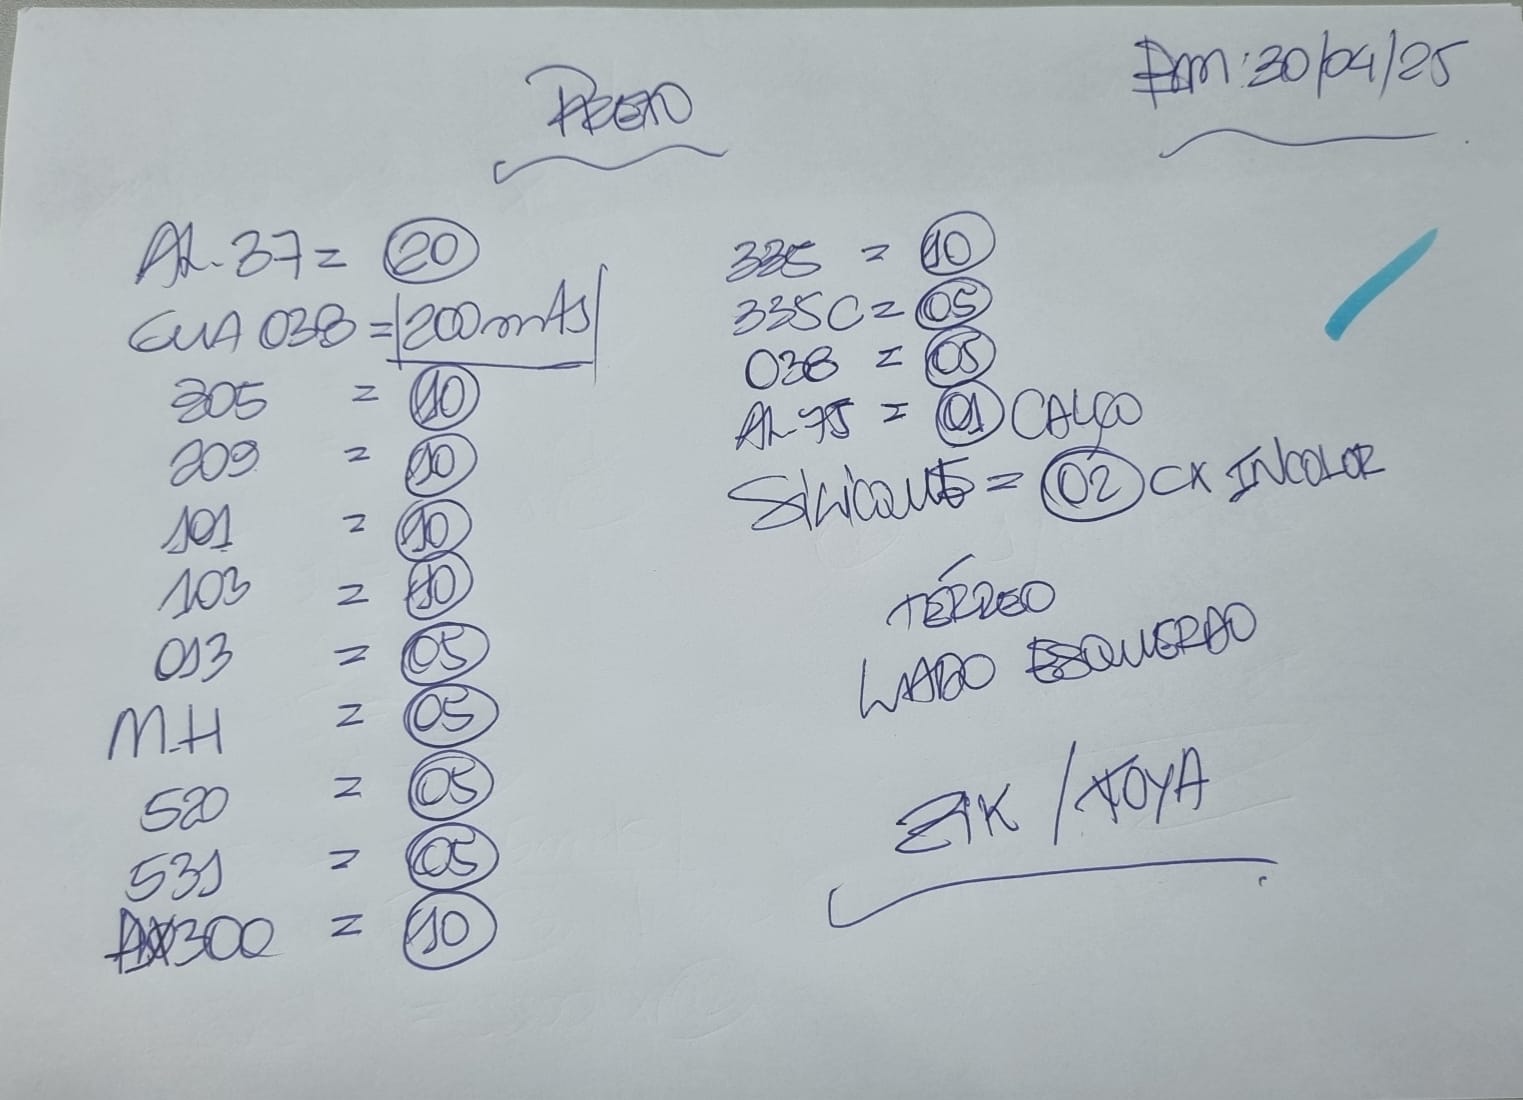 PRETO
Em: 30/04/25
AL.37 = 20
GUA 038 = 200 mts
305 = 10
209 = 10
101 = 10
103 = 10
013 = 05
M.H = 05
520 = 05
531 = 05
AX300 = 10
335 = 10
335C = 05
038 = 05
AL-75 = 01 CALÇO
SiLiCONE = 02 CX INCOLOR
TÉRREO
LADO ESQUERDO
/ TOYA